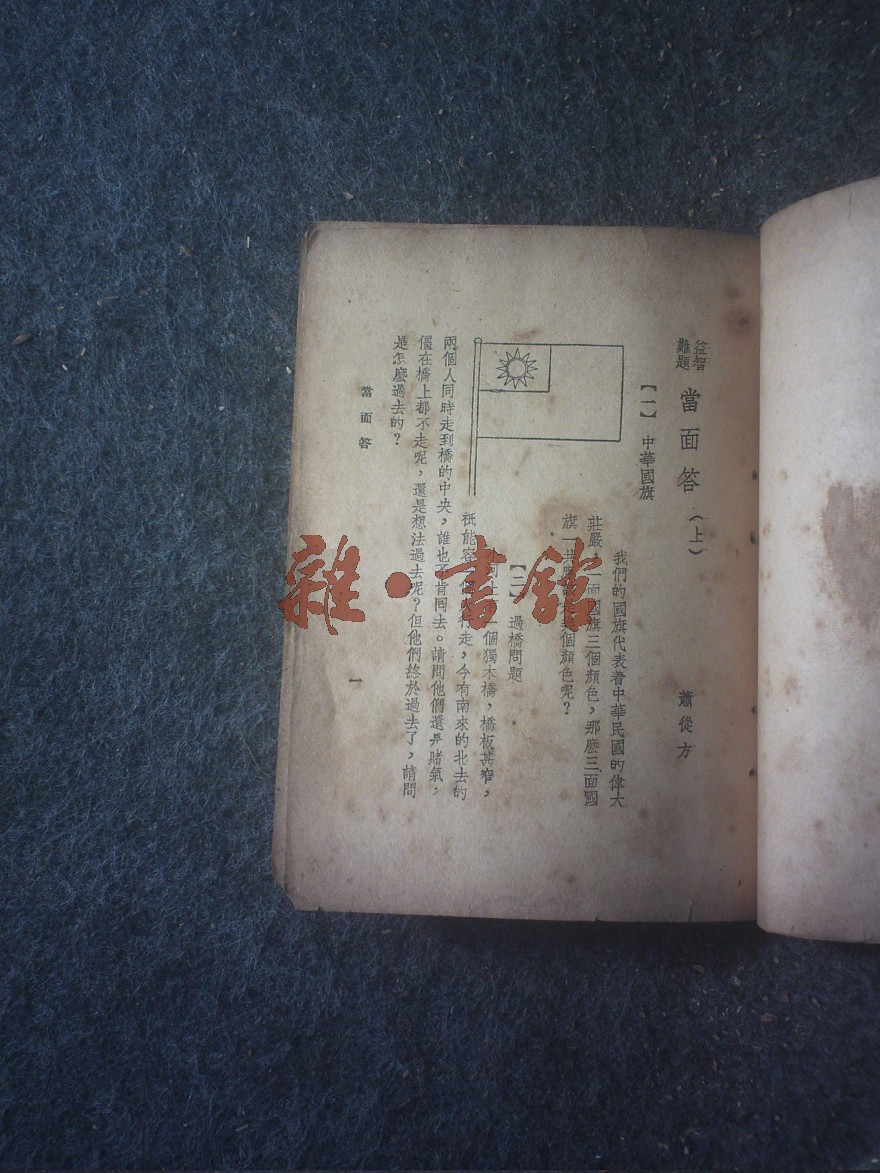 益智難題 當面答（上） 蕭從方
【一】 中華國旗
我們的國旗代表着中華民國的偉大
莊嚴，一面國旗三個顏色，那麽三面國
旗一共個顏色呢？
【二】 過橋問題
河上一個獨木橋，橋板甚窄，
祇能容一個行走，今有南來的北去的
兩個人同時走到橋的中央，誰也不肯囘去。請問他們還是賭氣，
僵在橋上都不走呢，還是想法過去呢？但他們終於過去了，請問
是怎麽過去的？
當面答
一
雜·書館